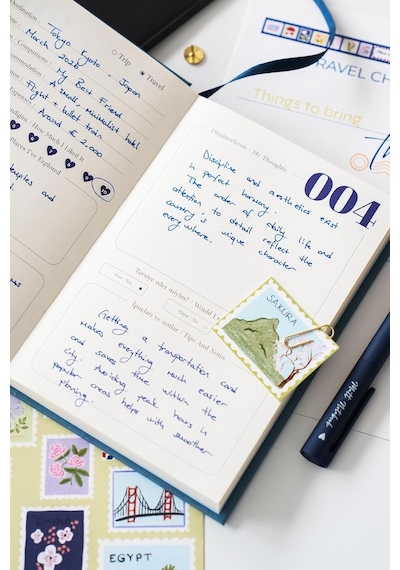 Destination:
Tokyo, Kyoto, Japan
Trip
Travel
March 2025
Companions:
My Best Friend
A small, minimalist hotel
Flight + bullet train
Around € 2.000
How Much I Liked It
Places I've Explored
temples and
Düşüncelerim : My Thoughts
004
Discipline and aesthetics exist
in perfect harmony.
The order of daily life and
attention to detail reflect the
country's unique character
everywhere.
Tavsiye eder miyim? : Would I
İpuçları ve notlar : Tips And Notes
Getting a transportation card
makes everything much easier
and saves time within the
city. Avoiding peak hours in
popular areas helps with smoother
planning.
SAKURA
TRAVEL CH
Things to bring
EGYPT